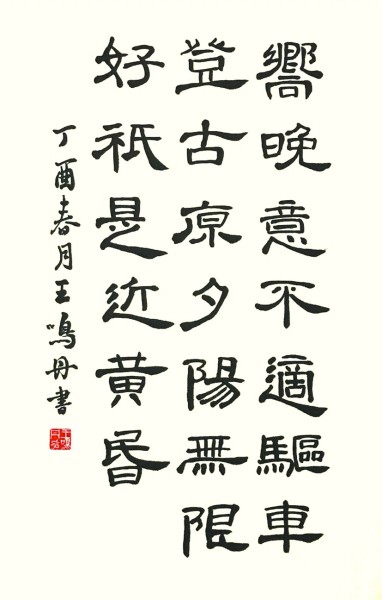 嚮晚意不適驅車
登古原夕陽無限
好祇是近黄昏
丁酉春月王鳴丹書